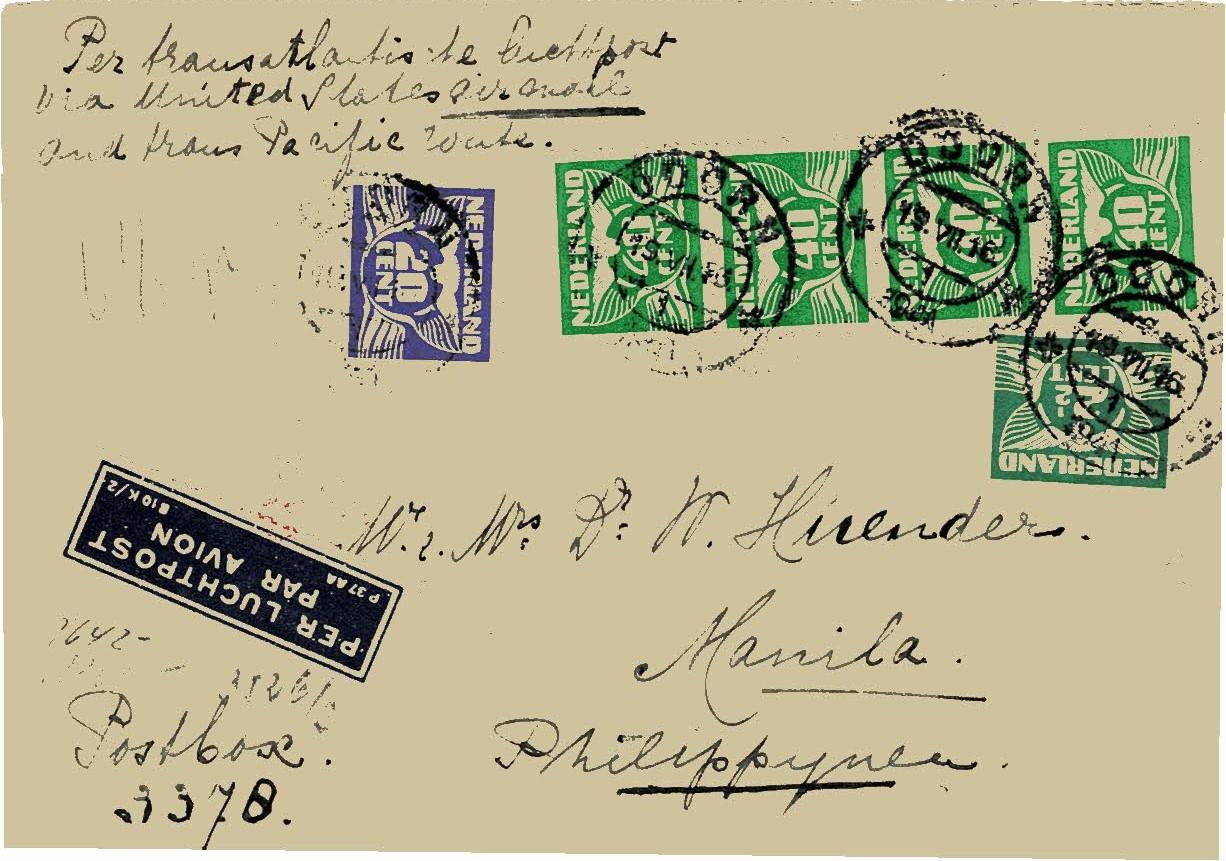 Per transatlantische Luchtpost
via United States airmail
and trans Pacific route.
NEDERLAND
20
CENT
NEDERLAND
40
CENT
NEDERLAND
40
CENT
NEDERLAND
40
CENT
NEDERLAND
40
CENT
NEDERLAND
2½
CENT
DOORN
19.VII.16
1
1941
DOORN
19.VII.16
1
1941
DOORN
19.VII.16
1
1941
PER LUCHTPOST
PAR AVION
P 3788
B10 K/2
Mr. Mrs Dr. W.
Manila.
Philippynen.
Postbox.
3378.